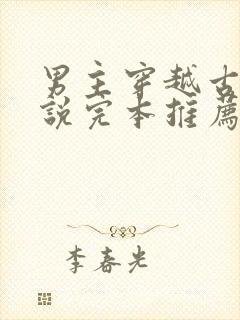 男主穿越古
說完本推薦
李春光